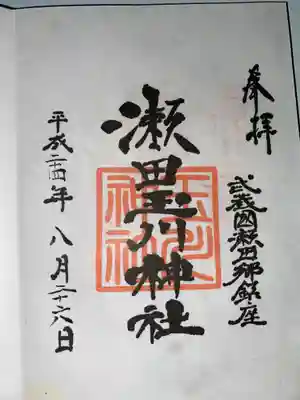 奉拝
武蔵國 田郷鎮座
瀬田玉川神社
平成二十四年八月二十六日